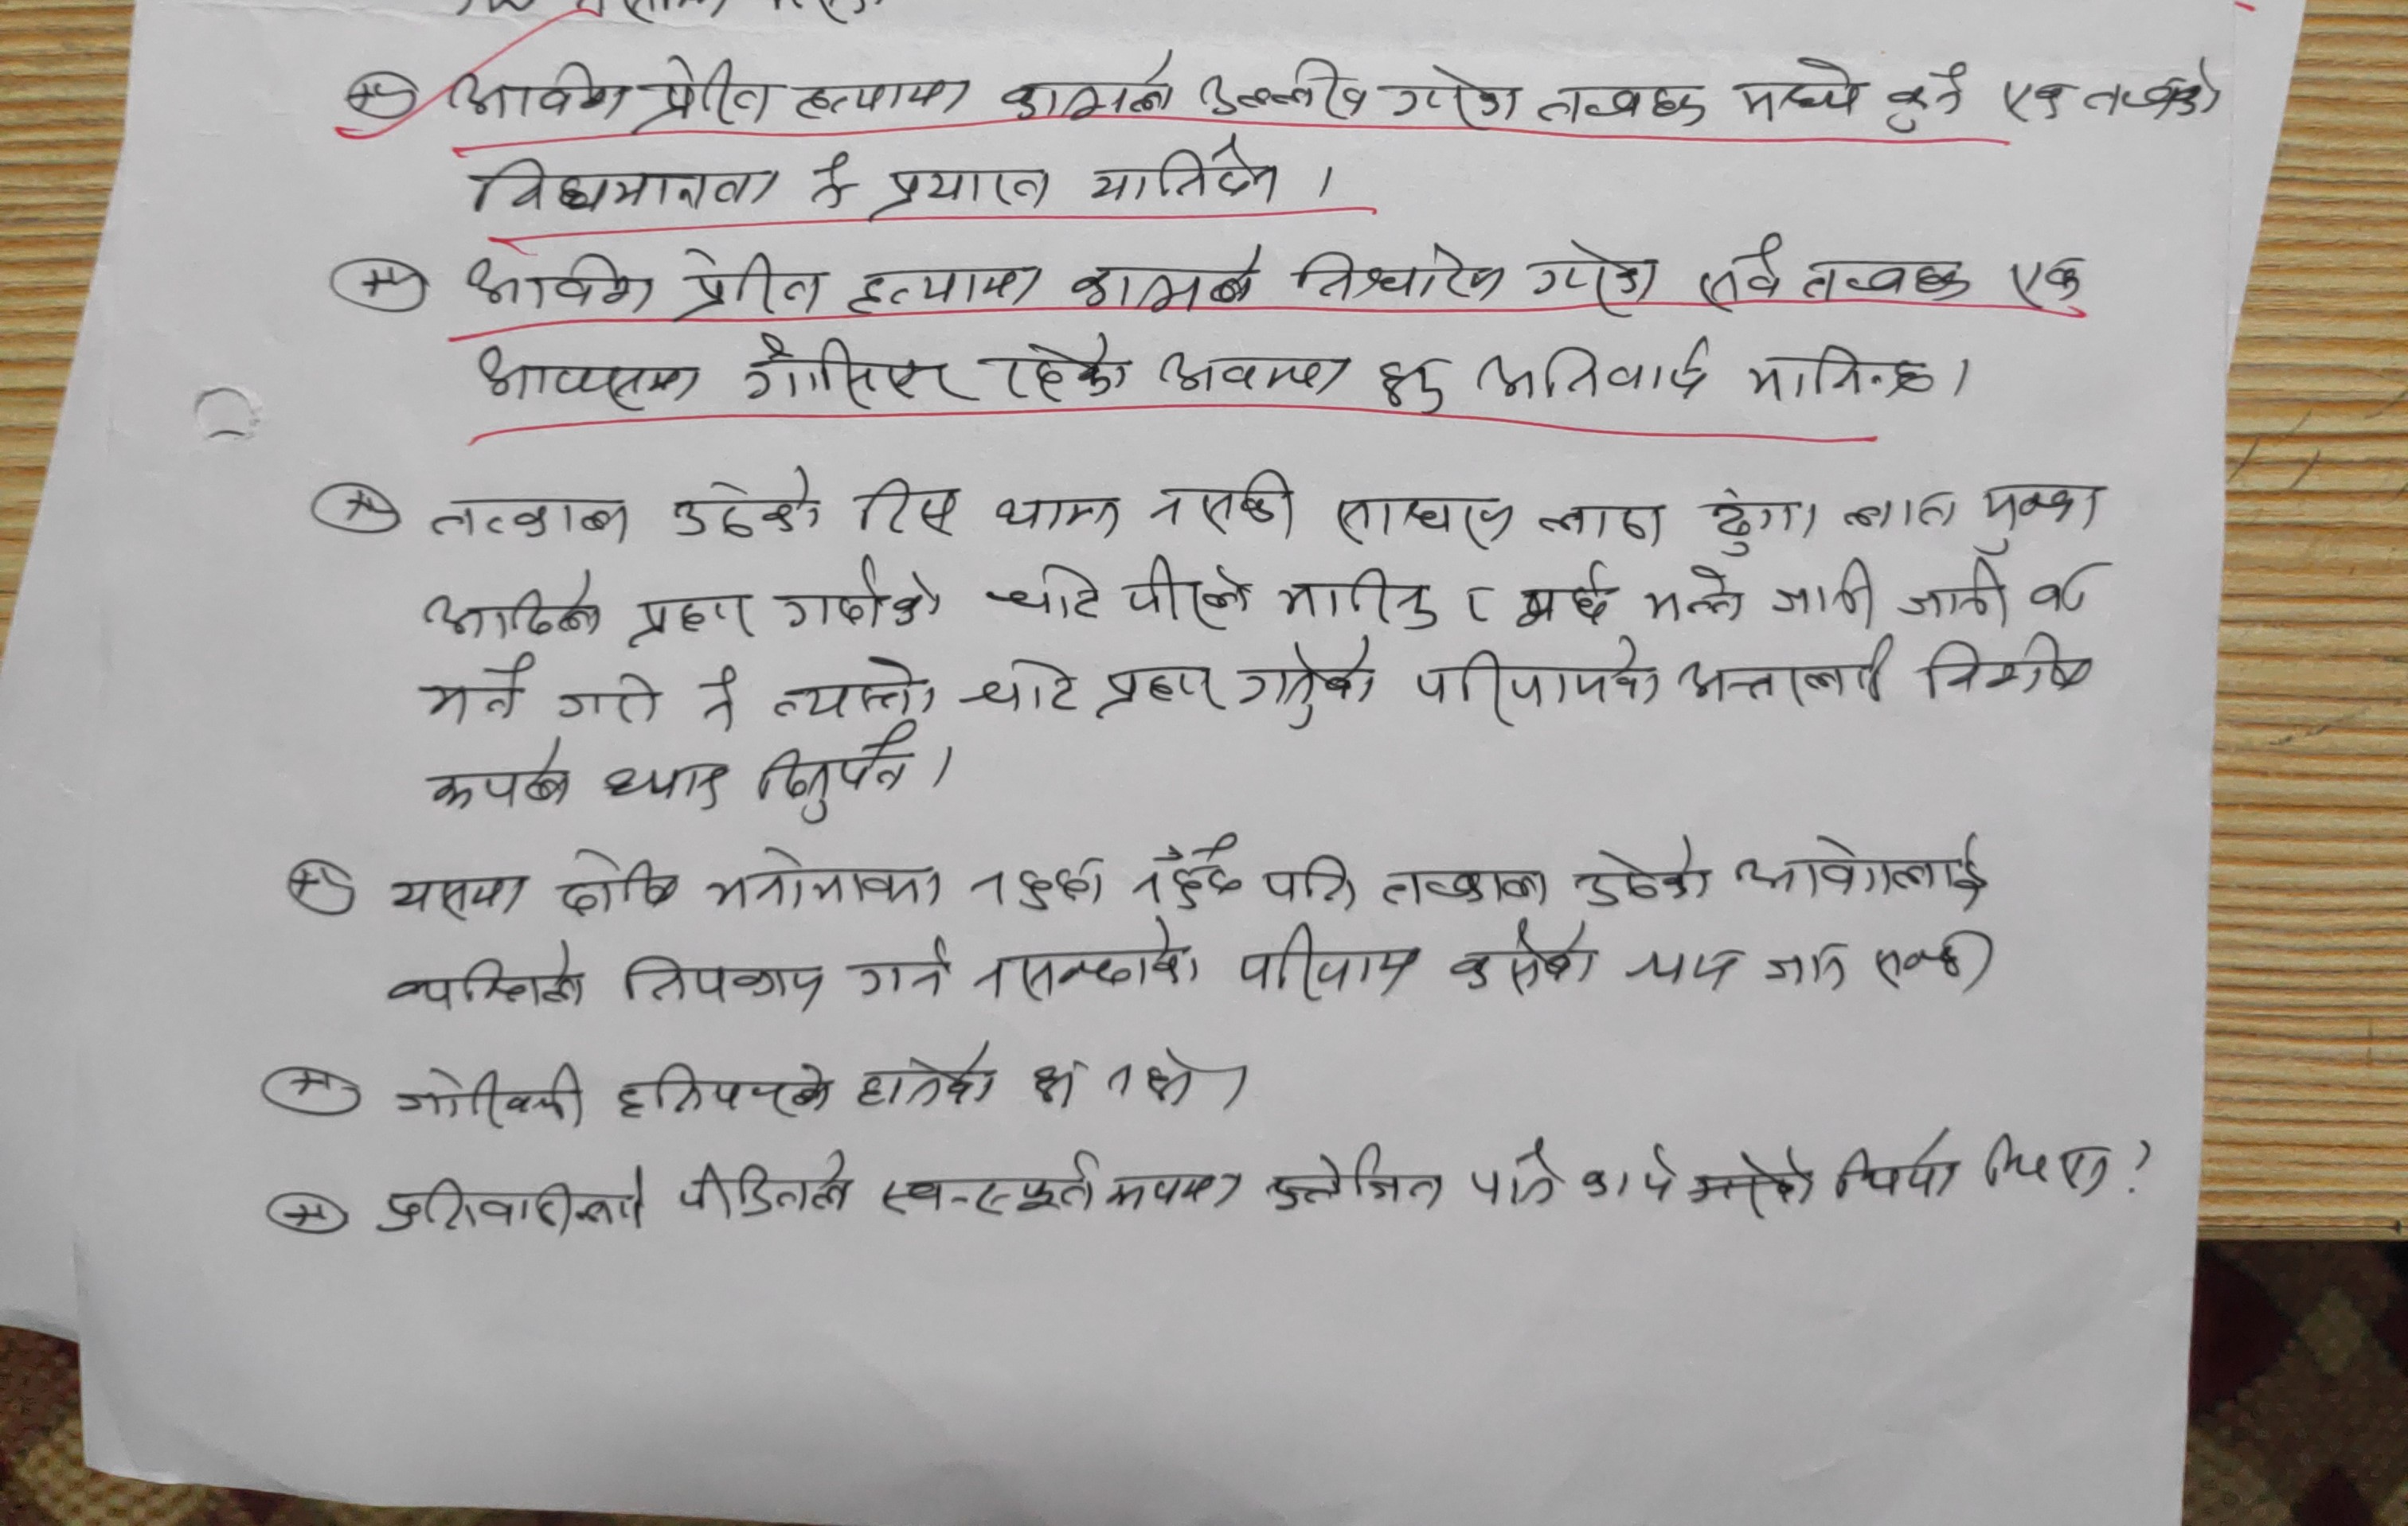 आवेग प्रेरित हत्यामा कानूनले उल्लेख गरेका तत्वहरु मध्ये कुनै एक तत्वको
विद्यमानता नै प्रयाप्त मानिदैन ।
आवेग प्रेरित हत्यामा कानूनले निर्धारण गरेका सबै तत्वहरु एक
आपसमा गाँसिएर रहेको अवस्था हुनु अनिवार्य मानिन्छ ।
तत्काल उठेको रिस थाम्न नसकी साधारण लाठा ढुंगा लात मुक्का
आदिले प्रहार गर्दाको चोट पीरले मारिनु र मर्छ भन्ने जानी जानी वा
मर्ने गरी नै त्यस्तो चोट प्रहार गर्नुको परिणामको अन्तरलाई विशेष
रुपले ध्यान दिनुपर्ने ।
यसमा दोषि मनोभावना नहुदा नहुँदै पनि तत्काल उठेको आवेगलाई
व्यक्तिले नियन्त्रण गर्न नसक्दाको परिणाम कसैको ज्यान जान सक्छ
जोरिवाली हतियारले हानेको हो नहो ।
प्रतिवादीलाई पीडितले स्व-स्फूर्त रुपमा उत्तेजित पार्ने कार्य गरेको थियो थिएन ?